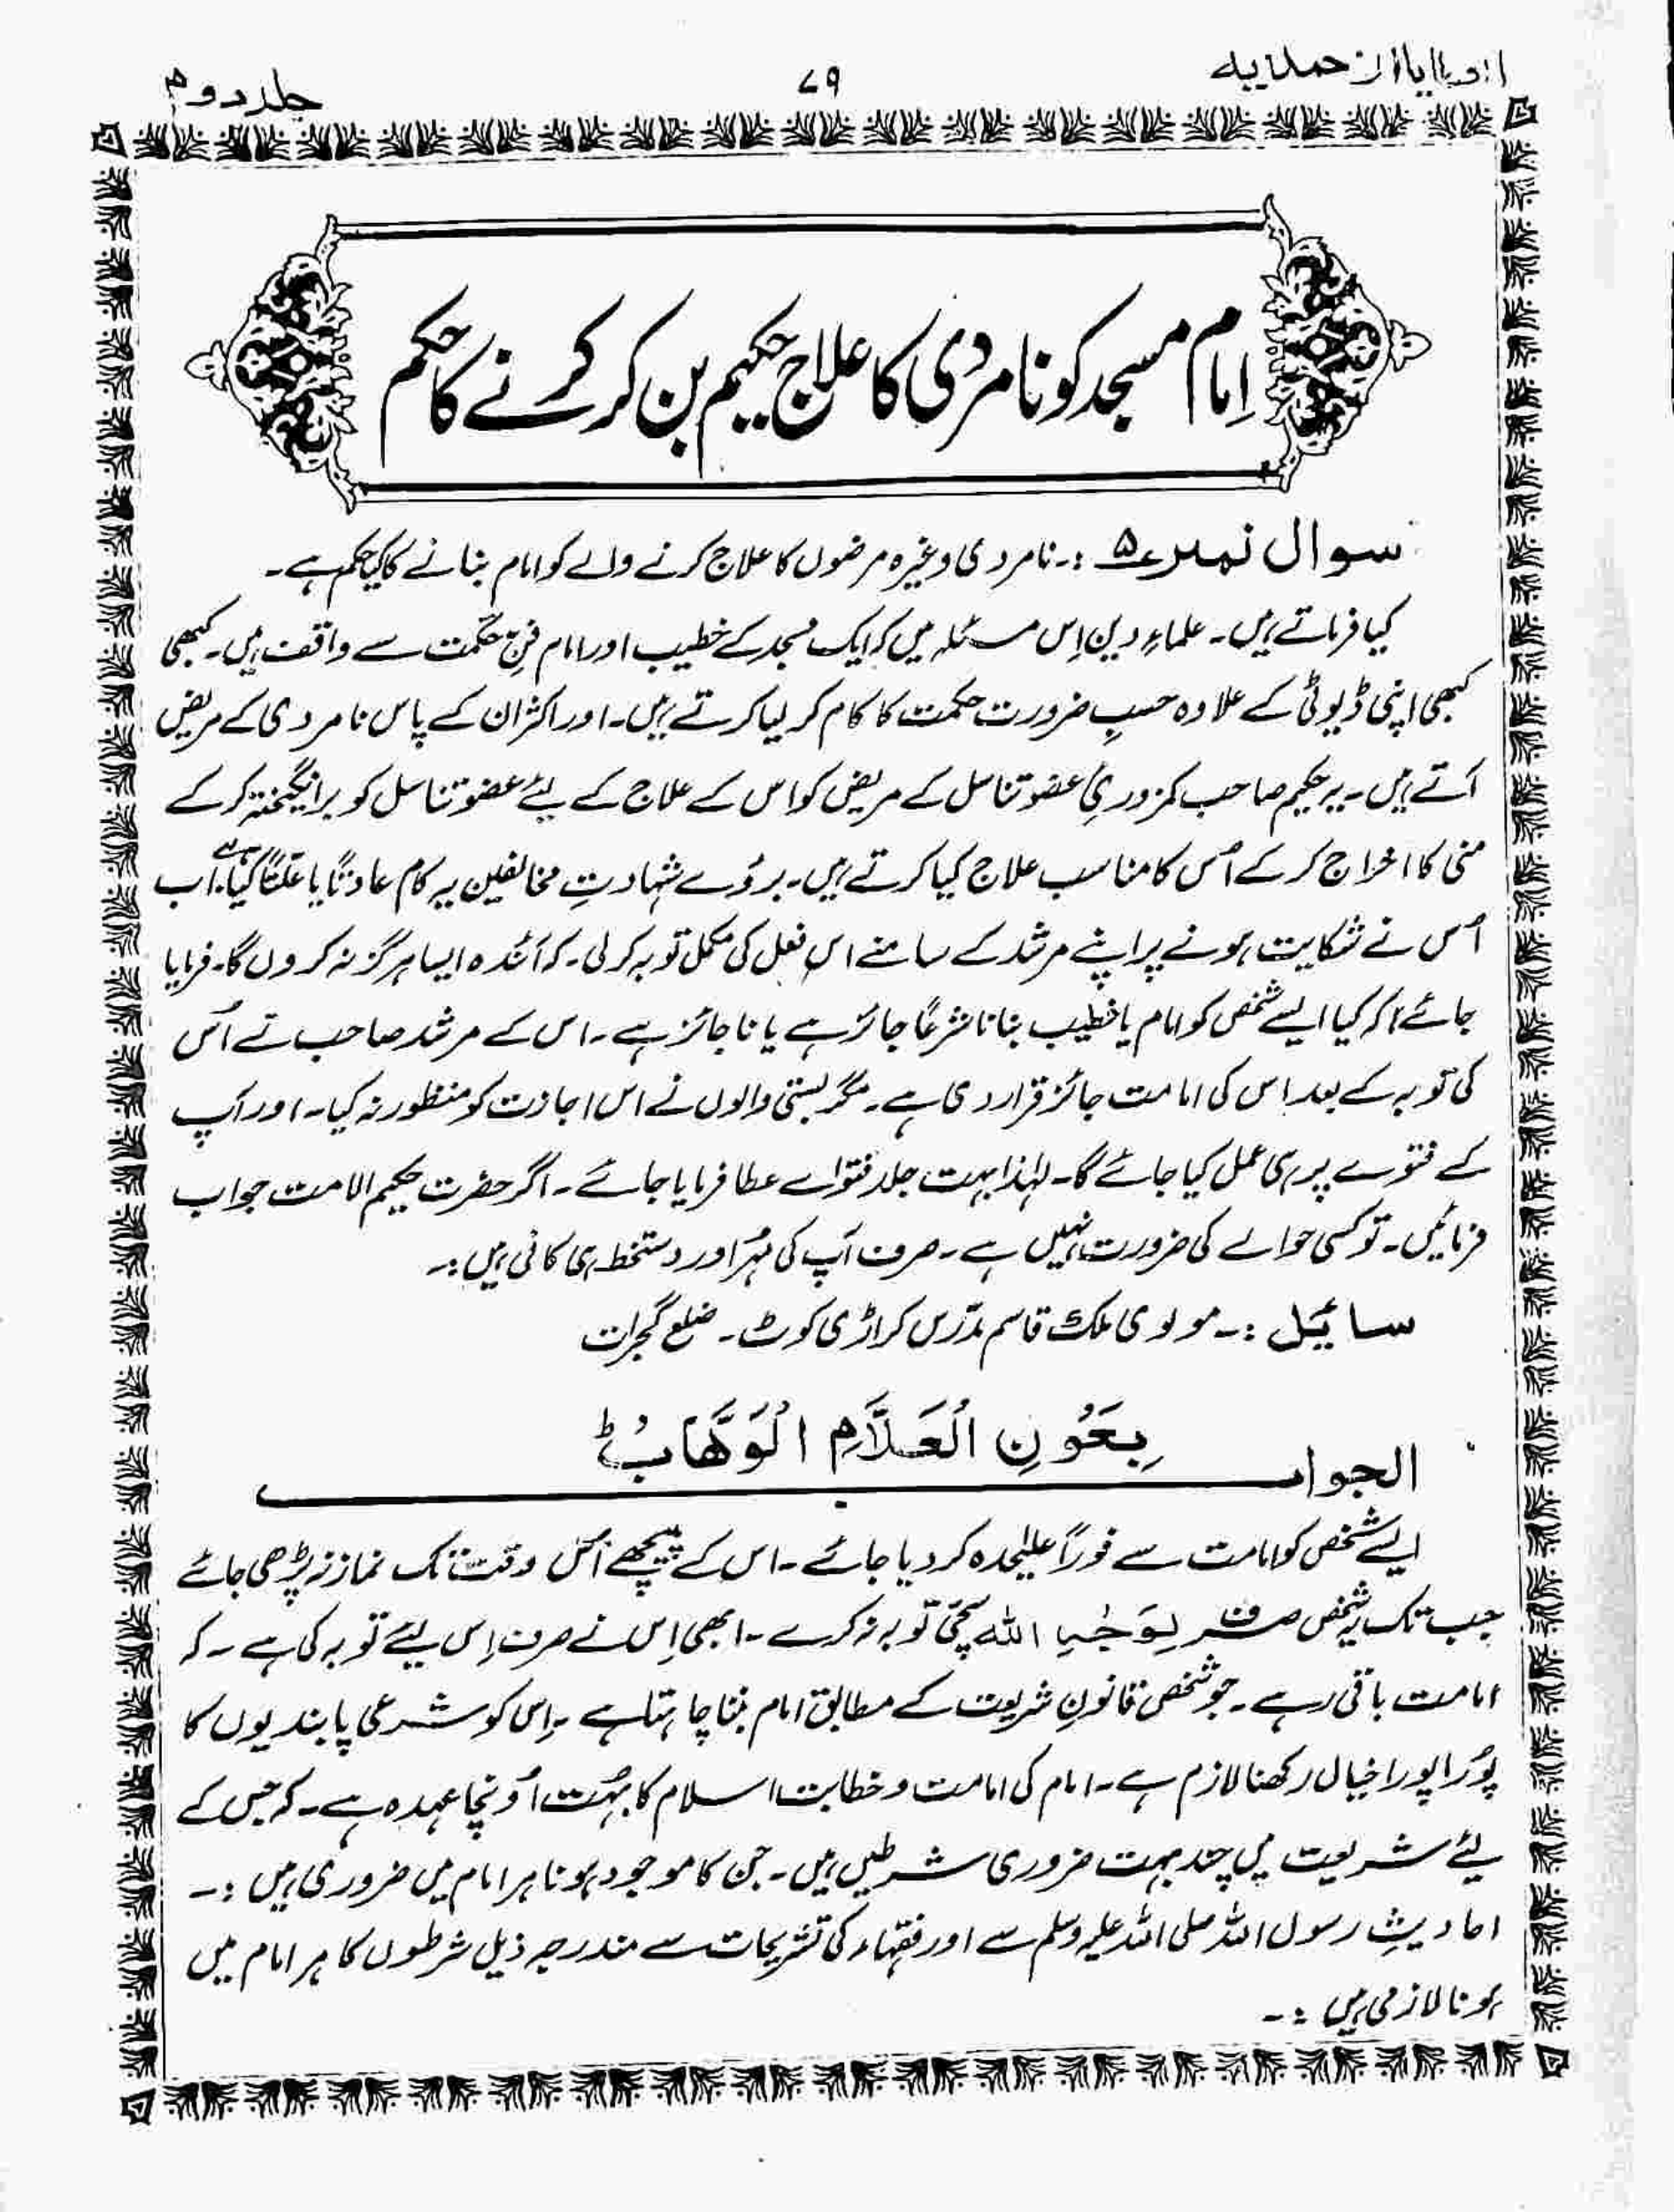 ۷۹
جلد دوم
امام مسجد کو نامردی کا علاج حکیم بن کر کرنے کا حکم
سوال نمبر ۵ :۔ نامردی وغیرہ مرضوں کا علاج کرنے والے کو امام بنانے کا کیا حکم ہے۔
کیا فرماتے ہیں۔ علماءِ دین اِس مسئلہ میں کہ ایک مسجد کے خطیب اور امام فنِ حکمت سے واقف ہیں۔ کبھی
کبھی اپنی ڈیوٹی کے علاوہ حسبِ ضرورت حکمت کا کام کر لیا کرتے ہیں۔ اور اکثر ان کے پاس نامردی کے مریض
آتے ہیں۔ یہ حکیم صاحب کمزوریٔ عضو تناسل کے مریض کو اس کے علاج کے لیئے عضو تناسل کو برانگیختہ کر کے
منی کا اخراج کر کے اُس کا مناسب علاج کیا کرتے ہیں۔ بروُے شہادتِ مخالفین یہ کام عادتًا یا علتًا کیا ہے۔ اب
اُس نے شکایت ہونے پر اپنے مرشد کے سامنے اس فعل کی مکمل توبہ کر لی۔ کہ آئندہ ایسا ہرگز نہ کروں گا۔ فرمایا
جائے کہ کیا ایسے شخص کو امام یا خطیب بنانا شرعًا جائز ہے یا ناجائز ہے۔ اس کے مرشد صاحب نے اُس
کی توبہ کے بعد اس کی امامت جائز قرار دی ہے۔ مگر بستی والوں نے اس اجازت کو منظور نہ کیا۔ اور آپ
کے فتوے پر ہی عمل کیا جائے گا۔ لہٰذا بہت جلد فتوائے عطا فرمایا جائے۔ اگر حضرت حکیم الامت جواب
فرمائیں۔ تو کسی حوالے کی ضرورت نہیں ہے۔ صرف آپ کی مُہر اور دستخط ہی کافی ہیں :۔
سائیل :۔ مولوی ملک قاسم مدّرس کراڑی کوٹ۔ ضلع گجرات
بِعَوْنِ الْعَلَّامِ الْوَھَّابُ ط
الجواب
ایسے شخص کو امامت سے فورًا علیٰحدہ کر دیا جائے۔ اس کے پیچھے اُس وقت تک نماز نہ پڑھی جائے
جب تک یہ شخص صرف لِوَجْہِ اللہ سچّی توبہ نہ کرے۔ ابھی اِس نے صرف اِس لیئے توبہ کی ہے۔ کہ
امامت باقی رہے۔ جو شخص قانونِ شریعت کے مطابق امام بننا چاہتا ہے۔ اِس کو شرعی پابندیوں کا
پوُرا پورا خیال رکھنا لازم ہے۔ امام کی امامت و خطابت اسلام کا بہُت اُونچا عہدہ ہے۔ کہ جس کے
لیئے شریعت میں چند بہت ضروری شرطیں ہیں۔ جن کا موجود ہونا ہر امام میں ضروری ہیں :۔
احادیثِ رسول اللہ صلی اللہ علیہ وسلم سے اور فقہاء کی تشریحات سے مندرجہ ذیل شرطوں کا ہر امام میں
ہونا لازمی ہیں :۔